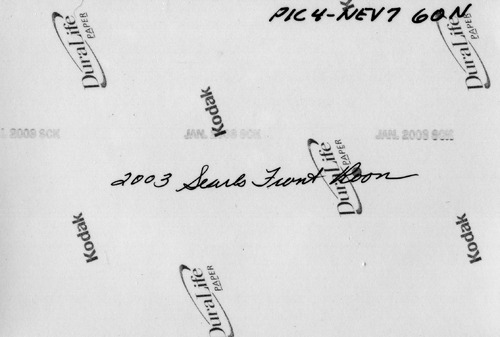 PIC4-NEV7 60N
DuraLife
PAPER
DuraLife
PAPER
Kodak
JAN. 2003 SCK
JAN. 2003 SCK
JAN. 2003 SCK
DuraLife
PAPER
2003 Searls Front Room
Kodak
Kodak
DuraLife
PAPER